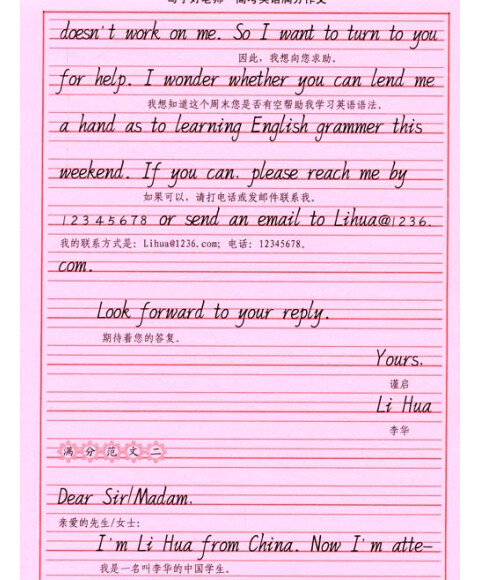 doesn't work on me. So I want to turn to you
因此，我想向您求助。
for help. I wonder whether you can lend me
我想知道这个周末您是否有空帮助我学习英语语法。
a hand as to learning English grammer this
weekend. If you can, please reach me by
如果可以，请打电话或发邮件联系我。
12345678 or send an email to Lihua@1236.
我的联系方式是：Lihua@1236.com；电话：12345678。
com.
Look forward to your reply.
期待着您的答复。
Yours,
谨启
Li Hua
李华
满分范文二
Dear Sir/Madam,
亲爱的先生/女士：
I'm Li Hua from China. Now I'm atte-
我是一名叫李华的中国学生。